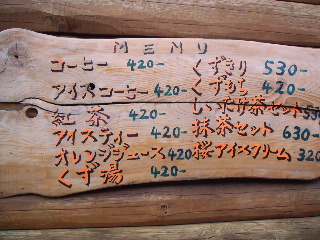 MENU
コーヒー 420-
アイスコーヒー 420-
紅茶 420-
アイスティー 420-
オレンジジュース 420
くず湯 420-
くずきり 530-
くずもち 420-
しいたけ茶セット 530
抹茶セット 630-
桜アイスクリーム 320